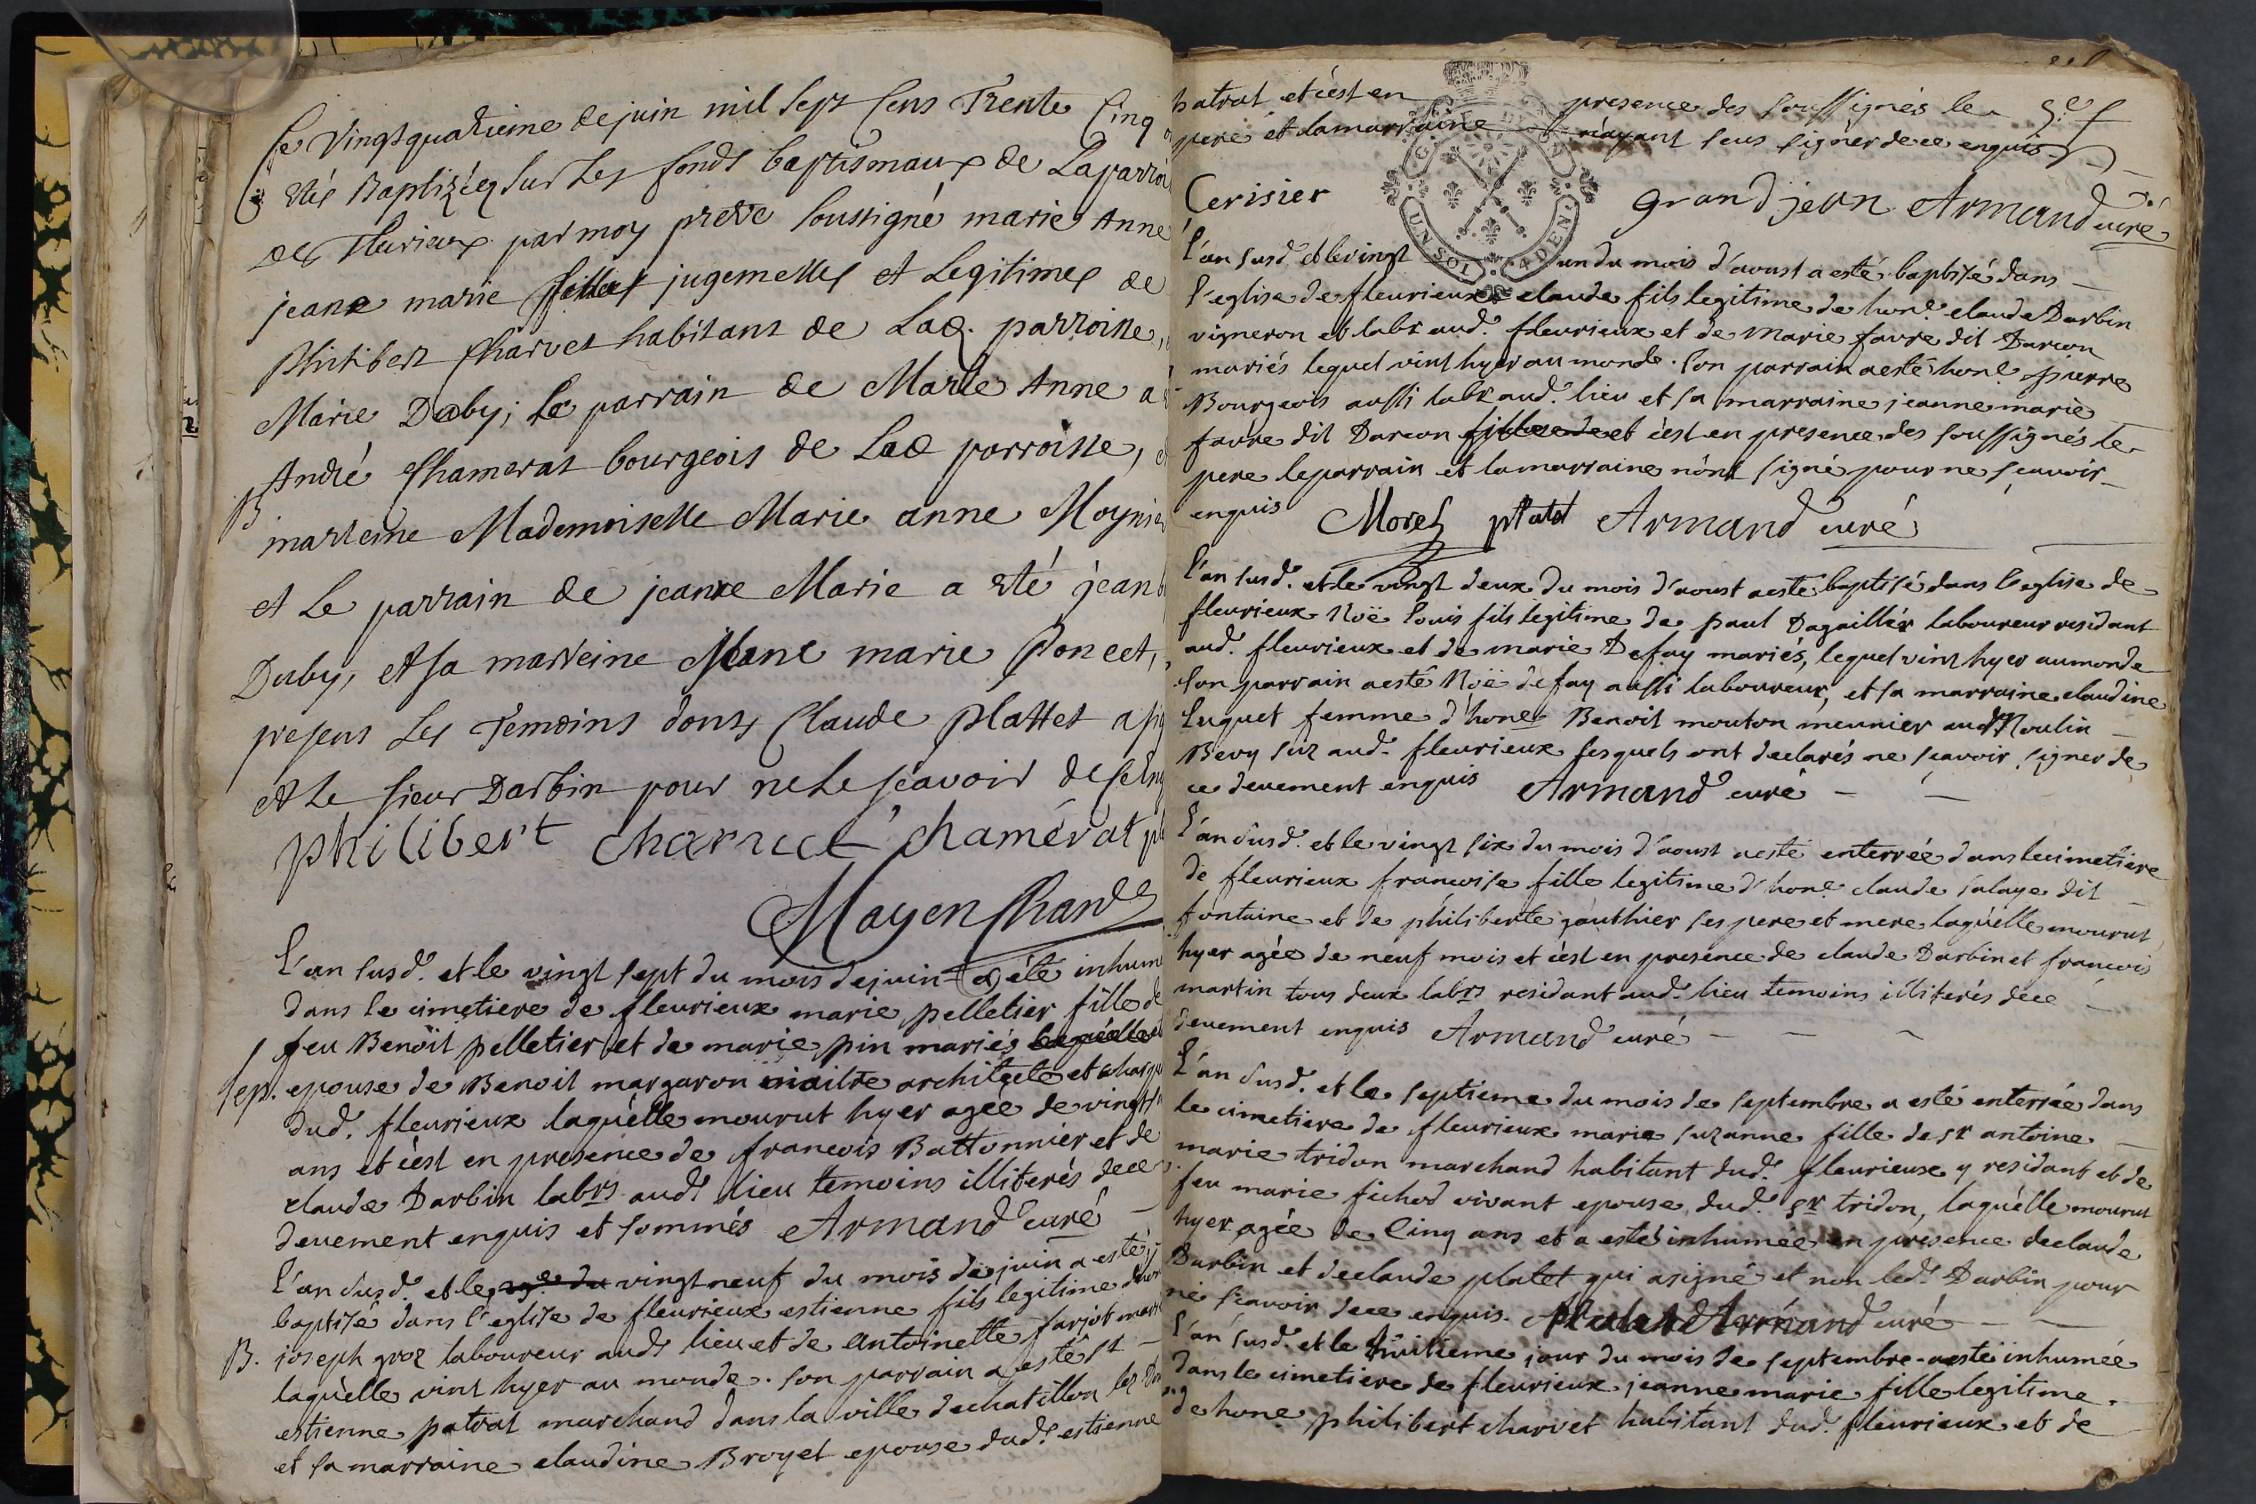 Ce vingtquatrieme de juin mil sept Cens Trente Cinq
estés Baptizéez sur les fonds baptismaux de Laparroi
de Fleurieux par moy pretre soussigné marie Anne
jeane marie filles jugemelles et Legitimes de
Philibert Charvet habitant de Lad. parroisse,
Marie Duby; Le parrain de Marie Anne a
André Chamerat bourgeois de Lad parroisse,
B
marreine Mademoiselle Marie anne Moynie
et Le parrain de jeanne Marie a eté jean
Duby, et sa marreine marie Poncet,
presens Les Temoins dont Claude Plattet a sig
et Le sieur Darbin pour ne Le scavoir de
philibert charvet chamérat
Mayen
L'an susd. et le vingt sept du mois de juin a été inhum
dans le cimetiere de fleurieux marie pelletier fille de
feu Benoit pelletier et de marie pin mariés laquelle
Sep. epouse de Benoit margaron maitre architecte et
dud. fleurieux laquelle mourut hyer agée de vingt
ans et c'est en presence de francois Battonnier et de
claude Darbin labrs aud. lieu temoins illiterés dece
deuement enquis et sommés Armand curé
L'an susd. et le 29e du vingt neuf du mois de juin a esté
baptisé dans l'eglise de fleurieux estienne fils legitime
B. joseph groz laboureur aud. lieu et de antoinette farjot
laquelle vint hyer au monde. son parrain a esté sr
estienne patrat marchand dans la ville de chatillon les
et sa marraine claudine Broyet epouse dud. estienne
patrat et c'est en presence des soussignés le
pere et la marraine n'ayant sceus signer de ce enquis
Cerisier grandjean Armand curé
UN SOL 4 DEN.
L'an susd. et le vingt un du mois d'aoust a esté baptisé dans
l'eglise de fleurieux claude fils legitime de hone. claude Darbin
vigneron et labr aud. fleurieux et de Marie favre dit Darcon
mariés lequel vint hyer au monde. son parrain a esté hone. pierre
Bourgeois aussi labr aud. lieu et sa marraine jeanne marie
favre dit Darcon fille de et c'est en presence des soussignés le
pere le parrain et la marraine n'ont signé pour ne scavoir
enquis Morel platet Armand curé
L'an susd. et le vingt deux du mois d'aoust a esté baptisé dans l'eglise de
fleurieux Noë Louis fils legitime de paul Dagaillier laboureur residant
aud. fleurieux et de marie Defay mariés, lequel vint hyer au monde
son parrain a esté Noë defay aussi laboureur, et sa marraine claudine
Luquet femme d'hone Benoit mouton meunier aud Moulin
Bevy sur aud. fleurieux lesquels ont declarés ne scavoir signer de
ce deuement enquis Armand curé
L'an susd. et le vingt six du mois d'aoust a esté enterrée dans le cimetiere
de fleurieux francoise fille legitime d'hone. claude salaye dit
fontaine et de philiberte gauthier ses pere et mere laquelle mourut
hyer agée de neuf mois et c'est en presence de claude Darbin et francois
martin tous deux labrs residant aud. lieu temoins illiterés dece
deuement enquis Armand curé
L'an susd. et le septieme du mois de septembre a esté enterrée dans
le cimetiere de fleurieux marie suzanne fille de sr antoine
marie tridon marchand habitant dud. fleurieux y residant et de
feu marie fichod vivant epouse dud. sr tridon, laquelle mourut
hyer agée de Cinq ans et a esté inhumée en presence de claude
Darbin et de claude platet qui a signé et non led. Darbin pour
ne scavoir dece enquis. Platet Armand curé
L'an susd. et le huitieme jour du mois de septembre a esté inhumée
dans le cimetiere de fleurieux jeanne marie fille legitime
de hone philibert charvet habitant dud. fleurieux et de